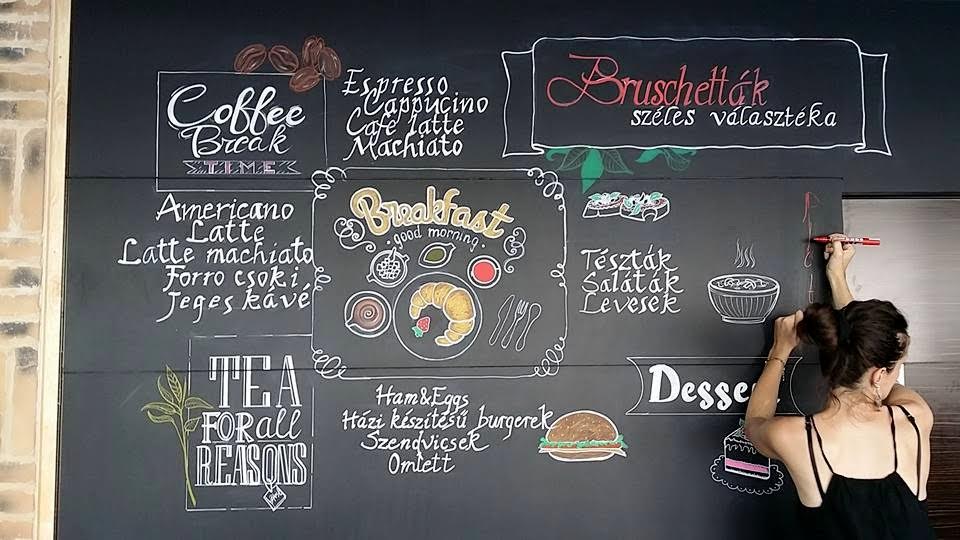 Coffee
Break
TIME
Espresso
Cappucino
Café latte
Machiato
Bruschetták
széles választéka
Americano
Latte
Latte machiato
Forro csoki
Jeges kávé
Breakfast
good morning
Tészták
Saláták
Levesek
TEA
FOR all
REASONS
Ham&Eggs
Házi készítésű burgerek
Szendvicsek
Omlett